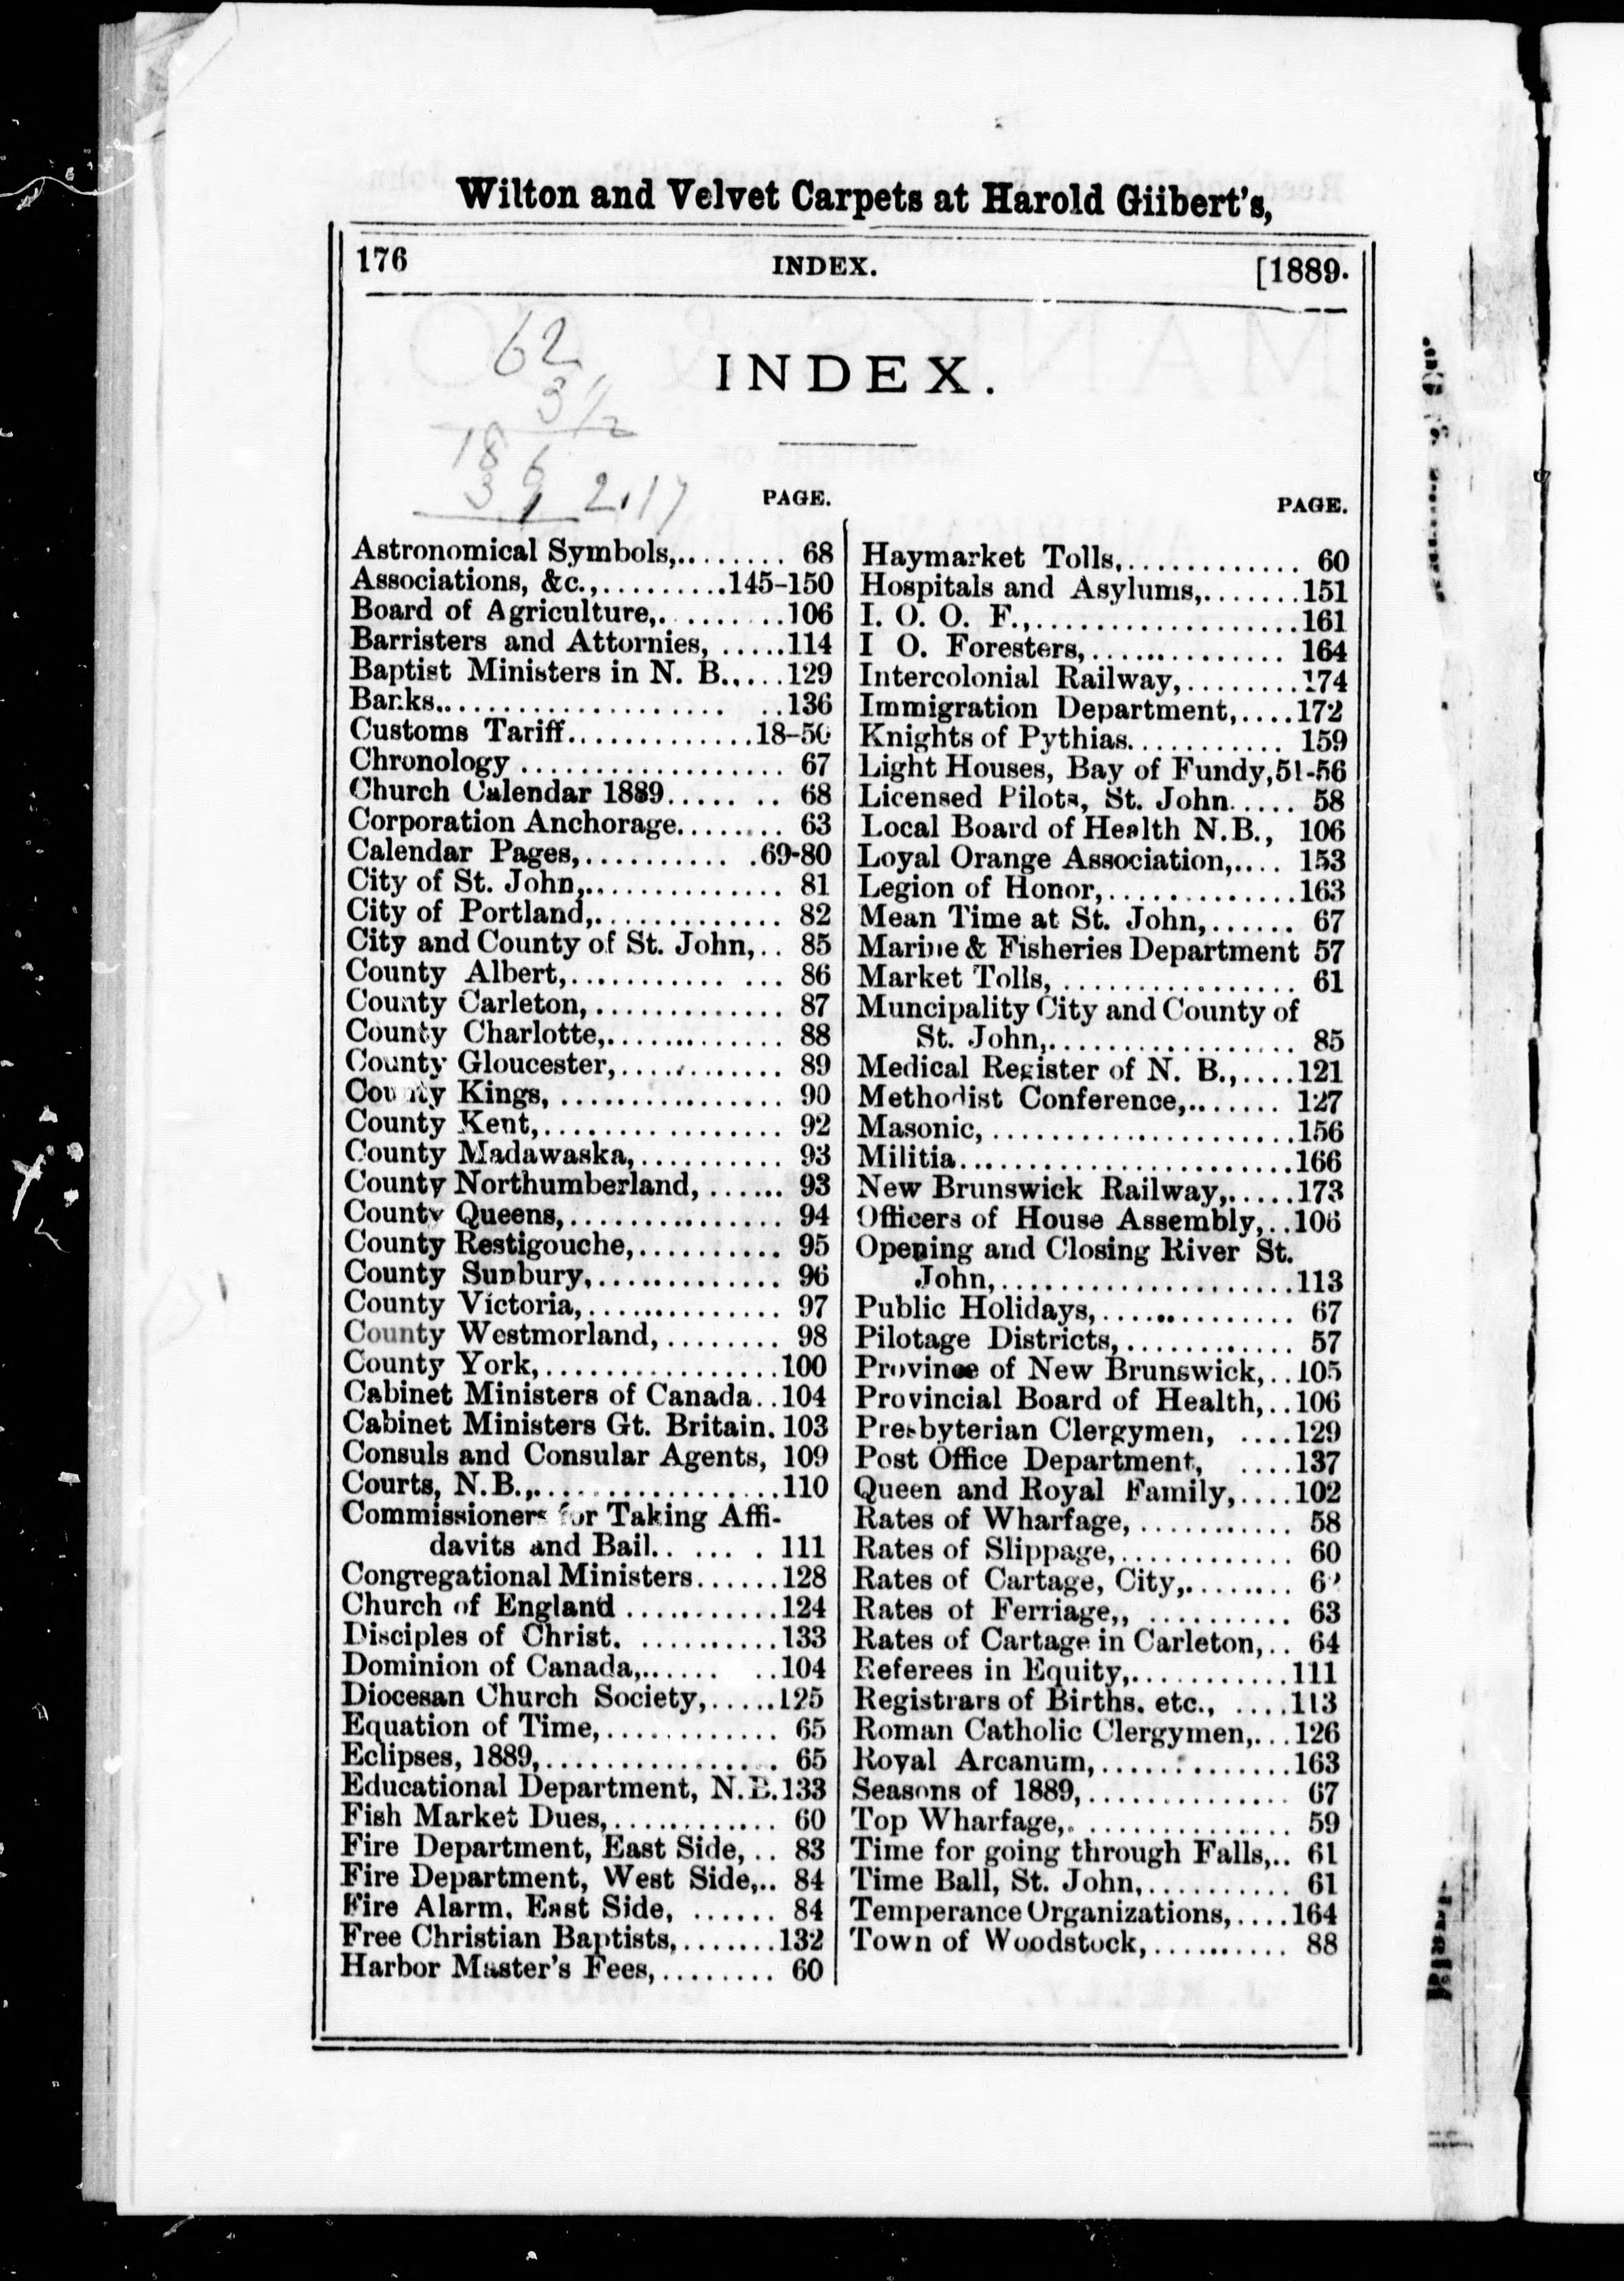 Wilton and Velvet Carpets at Harold Giibert's,
176 INDEX. [1889.
62
3½
186
3 2.17
INDEX.
PAGE.
Astronomical Symbols,......... 68
Associations, &c.,..........145-150
Board of Agriculture,.........106
Barristers and Attornies, .....114
Baptist Ministers in N. B.,....129
Banks.......................136
Customs Tariff..............18-50
Chronology ................... 67
Church Calendar 1889........ 68
Corporation Anchorage........ 63
Calendar Pages,............69-80
City of St. John,.............. 81
City of Portland,.............. 82
City and County of St. John,.. 85
County Albert,............... 86
County Carleton,.............. 87
County Charlotte,............. 88
County Gloucester,............ 89
County Kings, ................ 90
County Kent,................. 92
County Madawaska,........... 93
County Northumberland,....... 93
County Queens,............... 94
County Restigouche,........... 95
County Sunbury,.............. 96
County Victoria,.............. 97
County Westmorland,......... 98
County York,.................100
Cabinet Ministers of Canada..104
Cabinet Ministers Gt. Britain.103
Consuls and Consular Agents, 109
Courts, N.B.,..................110
Commissioners for Taking Affi-
davits and Bail.. .... .111
Congregational Ministers......128
Church of England ...........124
Disciples of Christ. ..........133
Dominion of Canada,...... ..104
Diocesan Church Society,.....125
Equation of Time,............. 65
Eclipses, 1889,................. 65
Educational Department, N.B.133
Fish Market Dues,............ 60
Fire Department, East Side,.. 83
Fire Department, West Side,.. 84
Fire Alarm, East Side, ...... 84
Free Christian Baptists,.......132
Harbor Master's Fees,........ 60
PAGE.
Haymarket Tolls,............. 60
Hospitals and Asylums,.......151
I. O. O. F.,...................161
I O. Foresters,............... 164
Intercolonial Railway,........174
Immigration Department,....172
Knights of Pythias........... 159
Light Houses, Bay of Fundy,51-56
Licensed Pilots, St. John..... 58
Local Board of Health N.B., 106
Loyal Orange Association,.... 153
Legion of Honor,.............163
Mean Time at St. John,...... 67
Marine & Fisheries Department 57
Market Tolls, ................. 61
Muncipality City and County of
St. John,.................. 85
Medical Register of N. B.,....121
Methodist Conference,....... 127
Masonic,......................156
Militia........................166
New Brunswick Railway,.....173
Officers of House Assembly,..106
Opening and Closing River St.
John,.....................113
Public Holidays,.............. 67
Pilotage Districts,............ 57
Province of New Brunswick,..105
Provincial Board of Health,..106
Presbyterian Clergymen, ....129
Post Office Department, ....137
Queen and Royal Family,....102
Rates of Wharfage,........... 58
Rates of Slippage,............ 60
Rates of Cartage, City,........
Rates of Ferriage,, .......... 63
Rates of Cartage in Carleton,.. 64
Referees in Equity,...........111
Registrars of Births. etc., ....113
Roman Catholic Clergymen,...126
Royal Arcanum,..............163
Seasons of 1889,.............. 67
Top Wharfage,................ 59
Time for going through Falls,.. 61
Time Ball, St. John,........... 61
Temperance Organizations,....164
Town of Woodstock,.......... 88